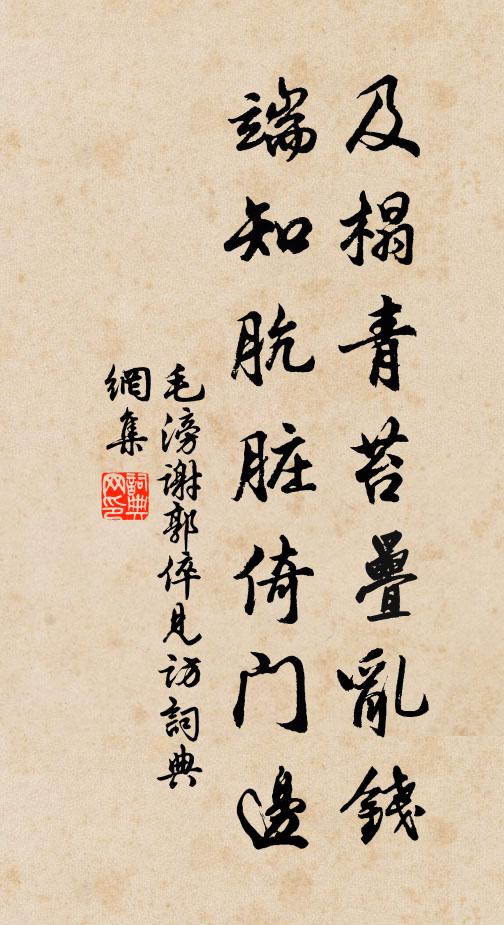 及榻青苔疊亂錢
端知肮脏倚门邊
毛滂谢郭倅見访詞典
網集
詞典网印